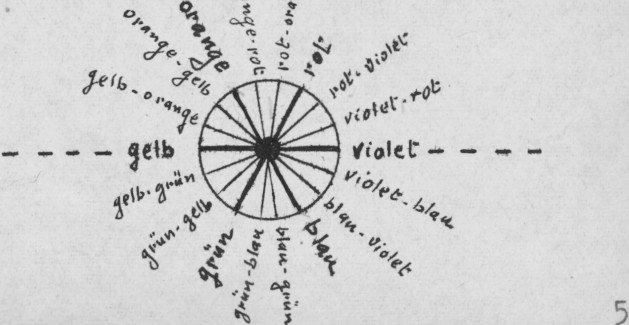 orange
orange-gelb
gelb-orange
gelb
gelb-grün
grün-gelb
grün
grün-blau
blau-grün
blau
blau-violet
violet-blau
violet
violet-rot
rot-violet
rot
5